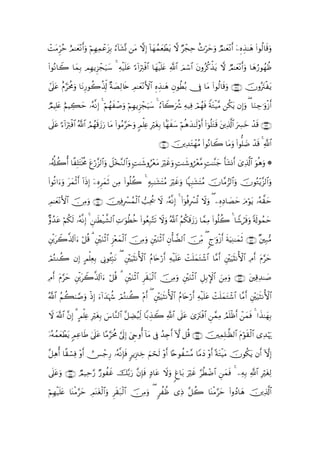 وَقَالُوا۟ هَٰذِهِۦٓ أَنْعَٰمٌ وَحَرْثٌ حِجْرٌ لَّا يَطْعَمُهَآ إِلَّا مَن نَّشَآءُ بِزَعْمِهِمْ وَأَنْعَٰمٌ حُرِّمَتْ
ظُهُورُهَا وَأَنْعَٰمٌ لَّا يَذْكُرُونَ ٱسْمَ ٱللَّهِ عَلَيْهَا ٱفْتِرَآءً عَلَيْهِ ۚ سَيَجْزِيهِم بِمَا كَانُوا۟
يَفْتَرُونَ ﴿١٣٨﴾ وَقَالُوا۟ مَا فِى بُطُونِ هَٰذِهِ ٱلْأَنْعَٰمِ خَالِصَةٌ لِّذُكُورِنَا وَمُحَرَّمٌ عَلَىٰٓ
أَزْوَٰجِنَا ۖ وَإِن يَكُن مَّيْتَةً فَهُمْ فِيهِ شُرَكَآءُ ۚ سَيَجْزِيهِمْ وَصْفَهُمْ ۚ إِنَّهُۥ حَكِيمٌ عَلِيمٌ
﴿١٣٩﴾ قَدْ خَسِرَ ٱلَّذِينَ قَتَلُوٓا۟ أَوْلَٰدَهُمْ سَفَهًۢا بِغَيْرِ عِلْمٍ وَحَرَّمُوا۟ مَا رَزَقَهُمُ ٱللَّهُ ٱفْتِرَآءً عَلَى
ٱللَّهِ ۚ قَدْ ضَلُّوا۟ وَمَا كَانُوا۟ مُهْتَدِينَ ﴿١٤٠﴾
۞ وَهُوَ ٱلَّذِىٓ أَنشَأَ جَنَّٰتٍ مَّعْرُوشَٰتٍ وَغَيْرَ مَعْرُوشَٰتٍ وَٱلنَّخْلَ وَٱلزَّرْعَ مُخْتَلِفًا أُكُلُهُۥ
وَٱلزَّيْتُونَ وَٱلرُّمَّانَ مُتَشَٰبِهًا وَغَيْرَ مُتَشَٰبِهٍ ۚ كُلُوا۟ مِن ثَمَرِهِۦٓ إِذَآ أَثْمَرَ وَءَاتُوا۟
حَقَّهُۥ يَوْمَ حَصَادِهِۦ ۖ وَلَا تُسْرِفُوٓا۟ ۚ إِنَّهُۥ لَا يُحِبُّ ٱلْمُسْرِفِينَ ﴿١٤١﴾ وَمِنَ ٱلْأَنْعَٰمِ
حَمُولَةً وَفَرْشًا ۚ كُلُوا۟ مِمَّا رَزَقَكُمُ ٱللَّهُ وَلَا تَتَّبِعُوا۟ خُطُوَٰتِ ٱلشَّيْطَٰنِ ۚ إِنَّهُۥ لَكُمْ عَدُوٌّ
مُّبِينٌ ﴿١٤٢﴾ ثَمَٰنِيَةَ أَزْوَٰجٍ ۖ مِّنَ ٱلضَّأْنِ ٱثْنَيْنِ وَمِنَ ٱلْمَعْزِ ٱثْنَيْنِ ۗ قُلْ ءَآلذَّكَرَيْنِ
حَرَّمَ أَمِ ٱلْأُنثَيَيْنِ أَمَّا ٱشْتَمَلَتْ عَلَيْهِ أَرْحَامُ ٱلْأُنثَيَيْنِ ۖ نَبِّـُٔونِى بِعِلْمٍ إِن كُنتُمْ
صَٰدِقِينَ ﴿١٤٣﴾ وَمِنَ ٱلْإِبِلِ ٱثْنَيْنِ وَمِنَ ٱلْبَقَرِ ٱثْنَيْنِ ۗ قُلْ ءَآلذَّكَرَيْنِ حَرَّمَ أَمِ
ٱلْأُنثَيَيْنِ أَمَّا ٱشْتَمَلَتْ عَلَيْهِ أَرْحَامُ ٱلْأُنثَيَيْنِ ۖ أَمْ كُنتُمْ شُهَدَآءَ إِذْ وَصَّىٰكُمُ ٱللَّهُ
بِهَٰذَا ۚ فَمَنْ أَظْلَمُ مِمَّنِ ٱفْتَرَىٰ عَلَى ٱللَّهِ كَذِبًا لِّيُضِلَّ ٱلنَّاسَ بِغَيْرِ عِلْمٍ ۗ إِنَّ ٱللَّهَ لَا
يَهْدِى ٱلْقَوْمَ ٱلظَّٰلِمِينَ ﴿١٤٤﴾ قُل لَّآ أَجِدُ فِى مَآ أُوحِىَ إِلَىَّ مُحَرَّمًا عَلَىٰ طَاعِمٍ يَطْعَمُهُۥٓ
إِلَّآ أَن يَكُونَ مَيْتَةً أَوْ دَمًا مَّسْفُوحًا أَوْ لَحْمَ خِنزِيرٍ فَإِنَّهُۥ رِجْسٌ أَوْ فِسْقًا أُهِلَّ
لِغَيْرِ ٱللَّهِ بِهِۦ ۚ فَمَنِ ٱضْطُرَّ غَيْرَ بَاغٍ وَلَا عَادٍ فَإِنَّ رَبَّكَ غَفُورٌ رَّحِيمٌ ﴿١٤٥﴾ وَعَلَى
ٱلَّذِينَ هَادُوا۟ حَرَّمْنَا كُلَّ ذِى ظُفُرٍ ۖ وَمِنَ ٱلْبَقَرِ وَٱلْغَنَمِ حَرَّمْنَا عَلَيْهِمْ